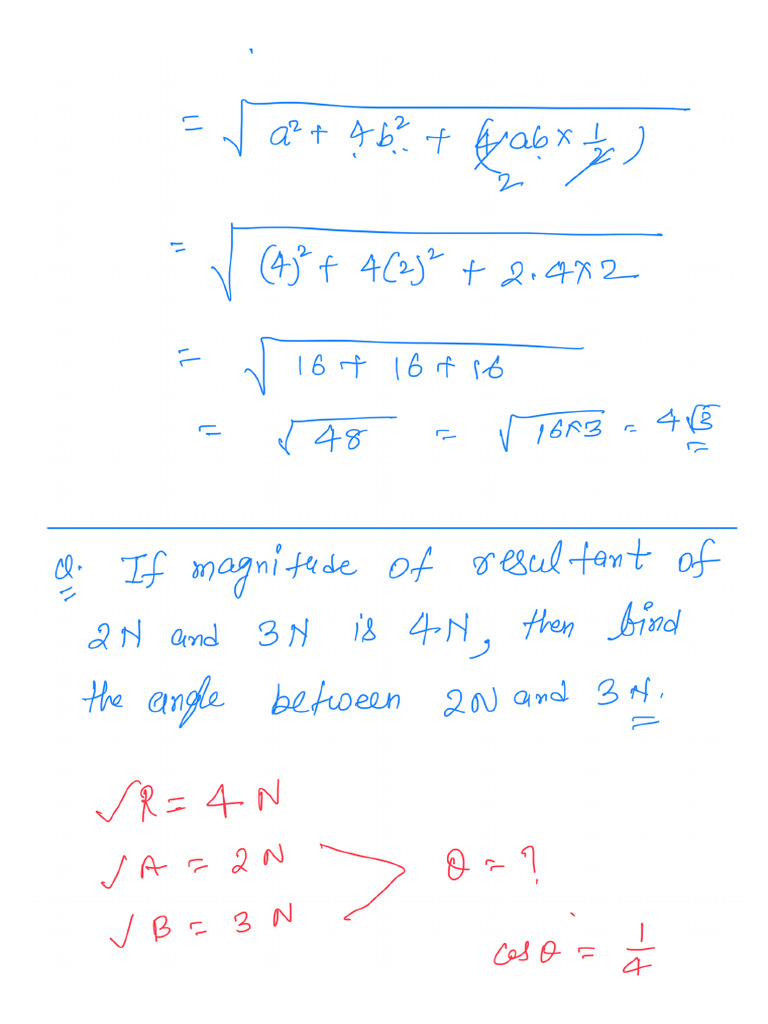 = √(a² + 4b² + (4ab × 1/2)
2
= √((4)² + 4(2)² + 2·4×2
= √(16 + 16 + 16
= √48 = √(16×3) = 4√3
Q. If magnitude of resultant of
2N and 3N is 4N, then find
the angle between 2N and 3N.
✓R = 4N
✓A = 2N
θ = ?
✓B = 3N
cosθ = 1/4